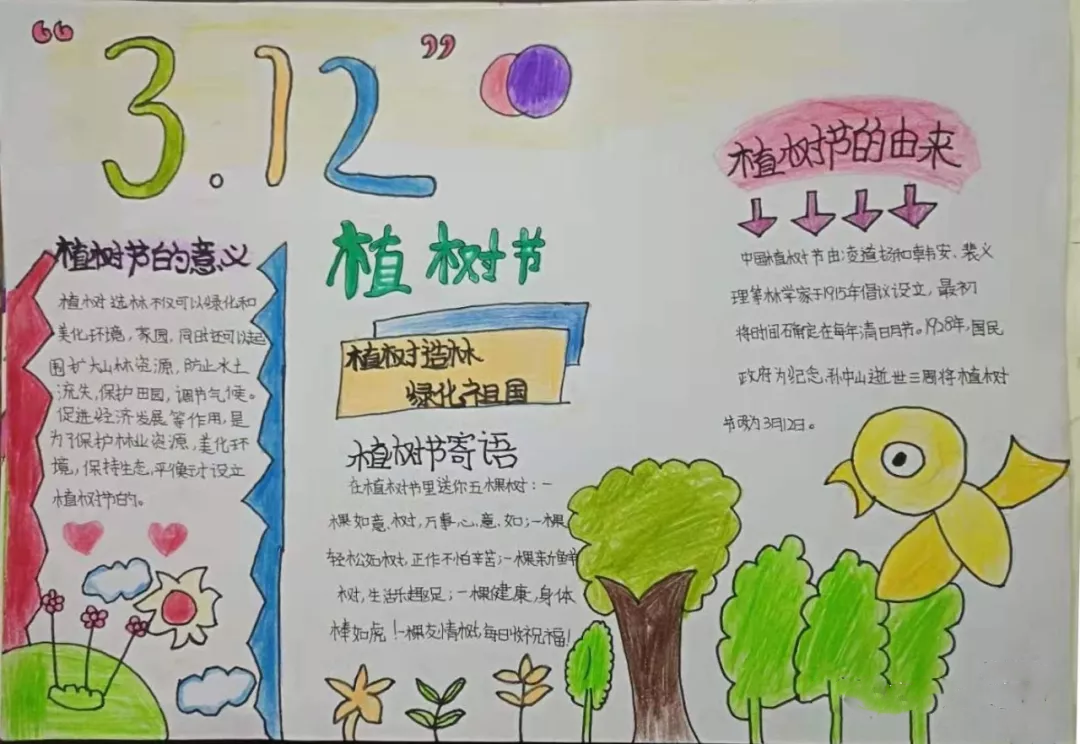 “3.12”
植树节的意义
植树造林不仅可以绿化和
美化环境，家园，同时还可以起
围扩大山林资源，防止水土
流失，保护田园，调节气候。
促进经济发展等作用，是
为了保护林业资源，美化环
境，保持生态，平衡讨设立
植树节的。
植树节
植树造林
绿化祖国
植树节寄语
在植树节里送你五棵树：一
棵如意树，万事心意如；一棵
轻松如树，工作不怕辛苦；一棵新鲜
树，生活乐趣足；一棵健康，身体
棒如虎！一棵友情树，每日收祝福！
植树节的由来
中国植树节由凌道扬和韩安、裴义
理等林学家于1915年倡议设立，最初
将时间确定在每年清明节。1928年，国民
政府为纪念孙中山逝世三周将植树
节改为3月12日。